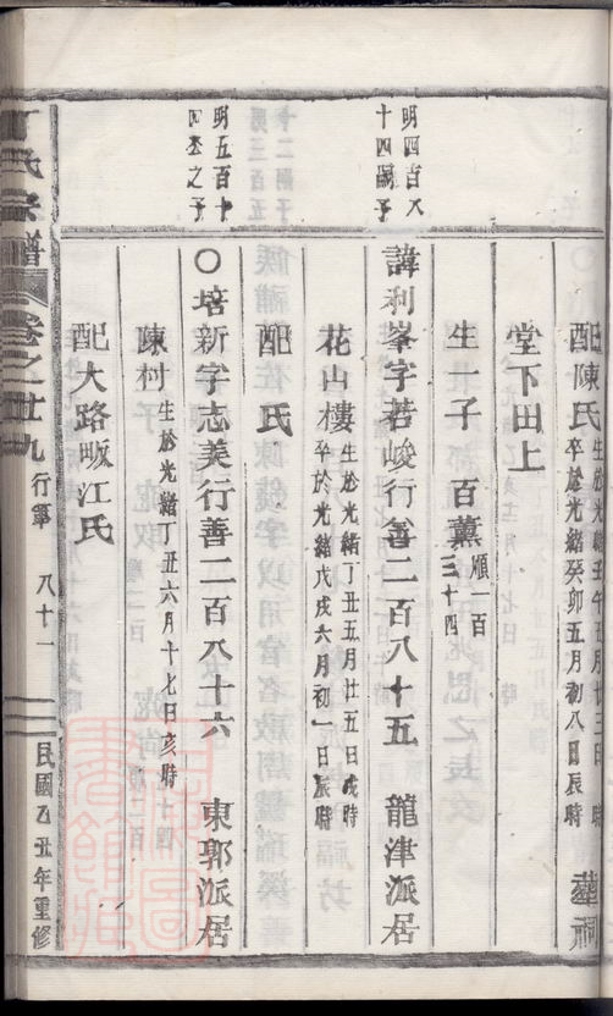 配陳氏 生於光緒壬午五月廿三日 時
卒於光緒癸卯五月初八日辰時 葬祠
堂下田上
生一子 百薰 順一百
三十四
明四百八
十四嗣子
諱利峯字若峻行善二百八十五 龍津派居
花山樓 生於光緒丁丑五月廿五日戌時
卒於光緒戊戌六月初一日辰時
配 氏
明五百十
四丕之子
○培新字志美行善二百八十六 東郭派居
陳村 生於光緒丁丑六月十七日亥時
配大路畈江氏
丁氏宗譜 卷之廿九 行第 八十一 民國乙丑年重修